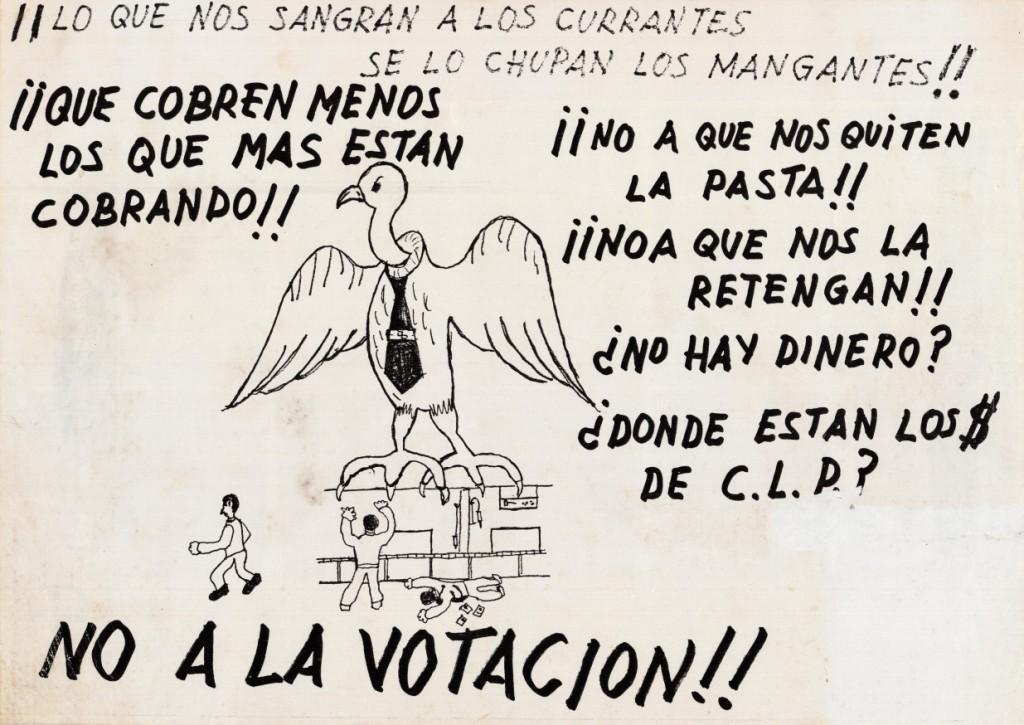 ¡¡LO QUE NOS SANGRAN A LOS CURRANTES
SE LO CHUPAN LOS MANGANTES!!
¡¡QUE COBREN MENOS
LOS QUE MAS ESTAN
COBRANDO!!
¡¡NO A QUE NOS QUITEN
LA PASTA!!
¡¡NO A QUE NOS LA
RETENGAN!!
¿NO HAY DINERO?
¿DONDE ESTAN LOS $
DE C.L.P.?
NO A LA VOTACION!!